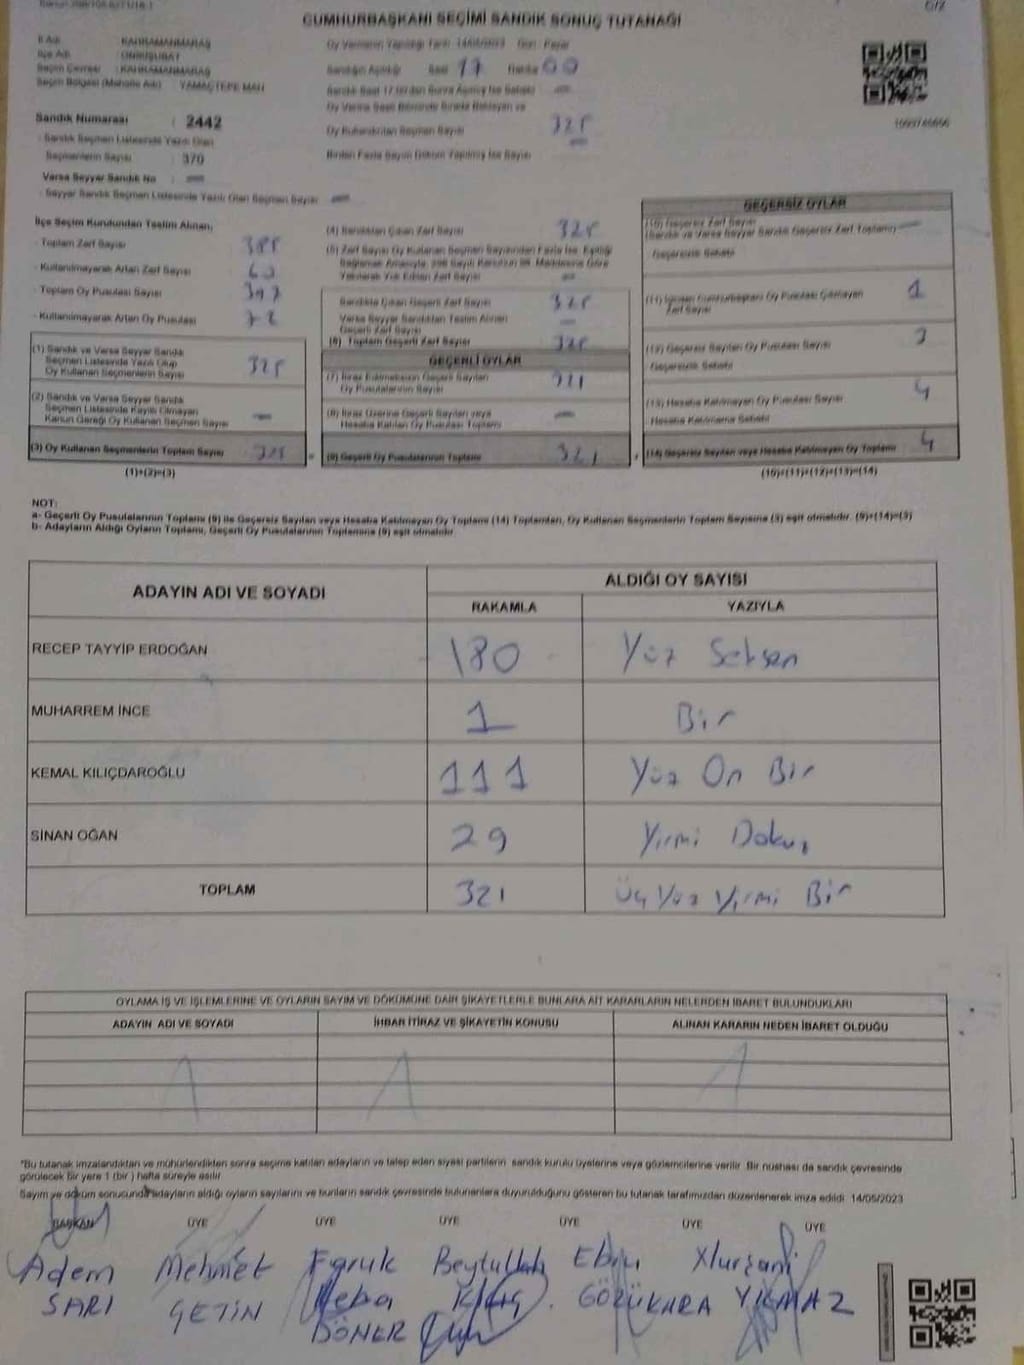 C/2
CUMHURBAŞKANI SEÇİMİ SANDIK SONUÇ TUTANAĞI
İl Adı : KAHRAMANMARAŞ
İlçe Adı : ONİKİŞUBAT
Seçim Çevresi : KAHRAMANMARAŞ
Seçim Bölgesi (Mahalle Adı) : YAMAÇTEPE MAH
Oy Vermenin Yapıldığı Tarih : 14/05/2023 Gün : Pazar
Sandığın Açıldığı Saat 17 Dakika 00
Oy Kullanan Seçmen Sayısı 325
Sandık Numarası : 2442
- Sandık Seçmen Listesinde Yazılı Olan
Seçmenlerin Sayısı : 370
Varsa Seyyar Sandık No : —
- Seyyar Sandık Seçmen Listesinde Yazılı Olan Seçmen Sayısı —
İlçe Seçim Kurulundan Teslim Alınan;
- Toplam Zarf Sayısı
- Kullanılmayarak Artan Zarf Sayısı
- Toplam Oy Pusulası Sayısı
- Kullanılmayarak Artan Oy Pusulası
(1) Sandık ve Varsa Seyyar Sandık
Seçmen Listesinde Yazılı Olup
Oy Kullanan Seçmenlerin Sayısı 325
(2) Sandık ve Varsa Seyyar Sandık
Seçmen Listesinde Kayıtlı Olmayan
Kanun Gereği Oy Kullanan Seçmen Sayısı —
(3) Oy Kullanan Seçmenlerin Toplam Sayısı 325
(1)+(2)=(3)
(4) Sandıktan Çıkan Zarf Sayısı 325
Sandıkta Çıkan Geçerli Zarf Sayısı 325
Varsa Seyyar Sandıktan Teslim Alınan
Geçerli Zarf Sayısı —
(6) Toplam Geçerli Zarf Sayısı 325
GEÇERLİ OYLAR
(7) İtiraz Edilmeksizin Geçerli Sayılan
Oy Pusulalarının Sayısı 321
(8) İtiraz Üzerine Geçerli Sayılan veya
Hesaba Katılan Oy Pusulası Toplamı —
(9) Geçerli Oy Pusulalarının Toplamı 321
GEÇERSİZ OYLAR
Geçersizlik Sebebi
Zarf Sayısı 1
(12) Geçersiz Sayılan Oy Pusulası Sayısı
Geçersizlik Sebebi
(13) Hesaba Katılmayan Oy Pusulası Sayısı 4
Hesaba Katılmama Sebebi
(14) Geçersiz Sayılan veya Hesaba Katılmayan Oy Toplamı 4
(10)+(11)+(12)+(13)=(14)
NOT:
a- Geçerli Oy Pusulalarının Toplamı (9) ile Geçersiz Sayılan veya Hesaba Katılmayan Oy Toplamı (14) Toplamları, Oy Kullanan Seçmenlerin Toplam Sayısına (3) eşit olmalıdır. (9)+(14)=(3)
b- Adayların Aldığı Oyların Toplamı, Geçerli Oy Pusulalarının Toplamına (9) eşit olmalıdır.
ADAYIN ADI VE SOYADI
ALDIĞI OY SAYISI
RAKAMLA YAZIYLA
RECEP TAYYİP ERDOĞAN 180 Yüz Seksen
MUHARREM İNCE 1 Bir
KEMAL KILIÇDAROĞLU 111 Yüz On Bir
SİNAN OĞAN 29 Yirmi Dokuz
TOPLAM 321 Üç Yüz Yirmi Bir
OYLAMA İŞ VE İŞLEMLERİNE VE OYLARIN SAYIM VE DÖKÜMÜNE DAİR ŞİKAYETLERLE BUNLARA AİT KARARLARIN NELERDEN İBARET BULUNDUKLARI
ADAYIN ADI VE SOYADI İHBAR İTİRAZ VE ŞİKAYETİN KONUSU ALINAN KARARIN NEDEN İBARET OLDUĞU
*Bu tutanak imzalandıktan ve mühürlendikten sonra seçime katılan adayların ve talep eden siyasi partilerin sandık kurulu üyelerine veya gözlemcilerine verilir. Bir nüshası da sandık çevresinde
görülecek bir yere 1 (bir ) hafta süreyle asılır.
Sayım ve döküm sonucunda adayların aldığı oyların sayılarını ve bunların sandık çevresinde bulunanlara duyurulduğunu gösteren bu tutanak tarafımızdan düzenlenerek imza edildi. 14/05/2023
BAŞKAN ÜYE ÜYE ÜYE ÜYE ÜYE ÜYE
Adem Mehmet Faruk Beytullah Ebru
SARI ÇETİN Kılıç GÖZÜKARA YILMAZ
DÖNER